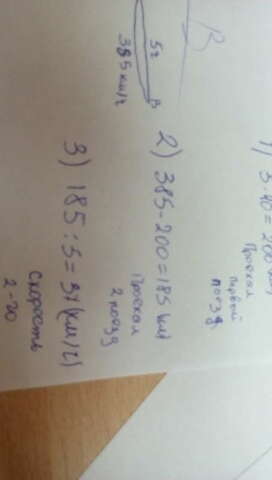 B
5ч
B
385 км/ч
1) 5·40=200(км)
Проехал
первый
поезд
2) 385-200=185 (км)
Проехал
2 поезд
3) 185:5=37(км/ч)
скорость
2-го